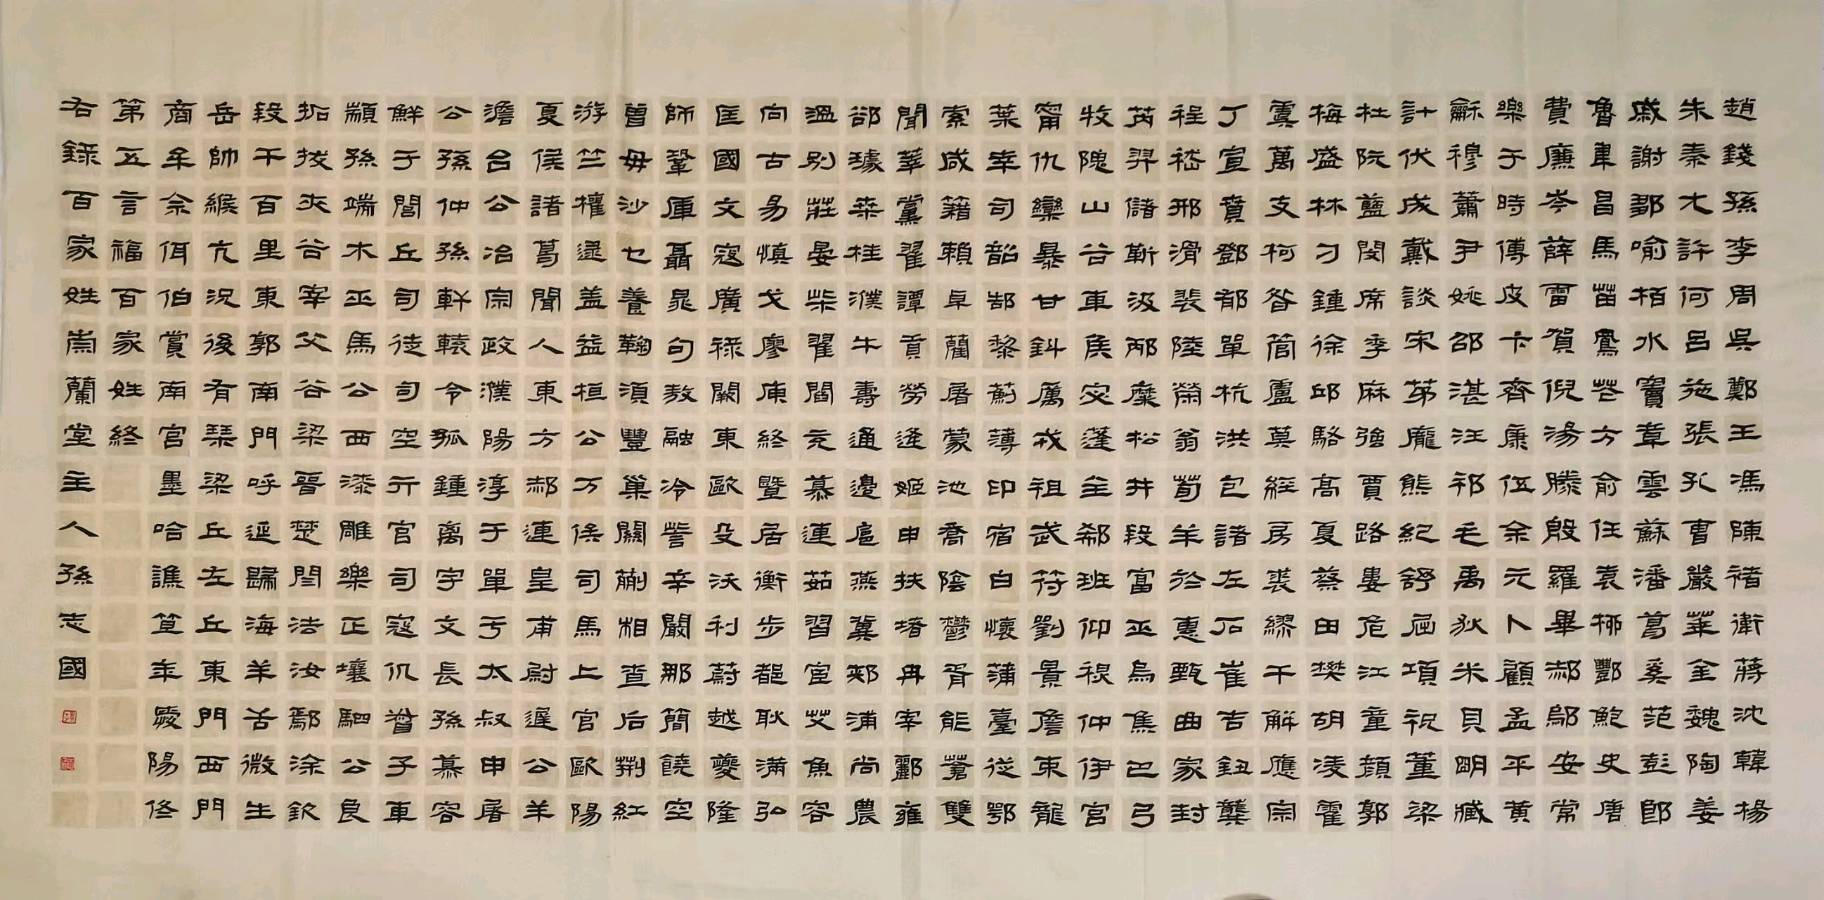 趙錢孫李周吳鄭王馮陳褚衛蔣沈韓楊
朱秦尤許何呂施張孔曹嚴華金魏陶姜
戚謝鄒喻柏水竇章雲蘇潘葛奚范彭郎
魯韋昌馬苗鳳花方俞任袁柳酆鮑史唐
費廉岑薛雷賀倪湯滕殷羅畢郝鄔安常
樂于時傅皮卞齊康伍余元卜顧孟平黃
龢穆蕭尹姚邵湛汪祁毛禹狄米貝朙臧
計伏成戴談宋茅龐熊紀舒屈項祝董梁
杜阮藍閔席季麻強賈路婁危江童顏郭
梅盛林刁鍾徐邱駱高夏蔡田樊胡凌霍
虞萬支柯昝管盧莫經房裘繆干解應宗
丁宣賁鄧郁單杭洪包諸左石崔吉鈕龔
程嵇邢滑裴陸榮翁荀羊於惠甄曲家封
芮羿儲靳汲邴糜松井段富巫烏焦巴弓
牧隗山谷車侯宓蓬全郗班仰秋仲伊宮
甯仇欒暴甘鈄厲戎祖武符劉景詹束龍
葉幸司韶郜黎薊薄印宿白懷蒲臺從鄂
索咸籍賴卓藺屠蒙池喬陰鬱胥能蒼雙
聞莘黨翟譚貢勞逄姬申扶堵冉宰酈雍
郤璩桑桂濮牛壽通邊扈燕冀郟浦尚農
溫別莊晏柴瞿閻充慕連茹習宦艾魚容
向古易慎戈廖庾終暨居衡步都耿滿弘
匡國文寇廣祿闕東歐殳沃利蔚越夔隆
師鞏厙聶晁句敖融冷訾辛闞那簡饒空
曾毋沙乜養鞠須豐巢關蒯相查后荊紅
游竺權逯蓋益桓公万俟司馬上官歐陽
夏侯諸葛聞人東方郝連皇甫尉遲公羊
澹台公冶宗政濮陽淳于單于太叔申屠
公孫仲孫軒轅令狐鍾離宇文長孫慕容
鮮于閭丘司徒司空亓官司寇仉督子車
顓孫端木巫馬公西漆雕樂正壤駟公良
拓拔夾谷宰父谷梁晉楚閆法汝鄢涂欽
段干百里東郭南門呼延歸海羊舌微生
岳帥緱亢況後有琴梁丘左丘東門西門
商牟佘佴伯賞南宮墨哈譙笪年愛陽佟
第五言福百家姓終
右錄百家姓崇蘭堂主人孫志國